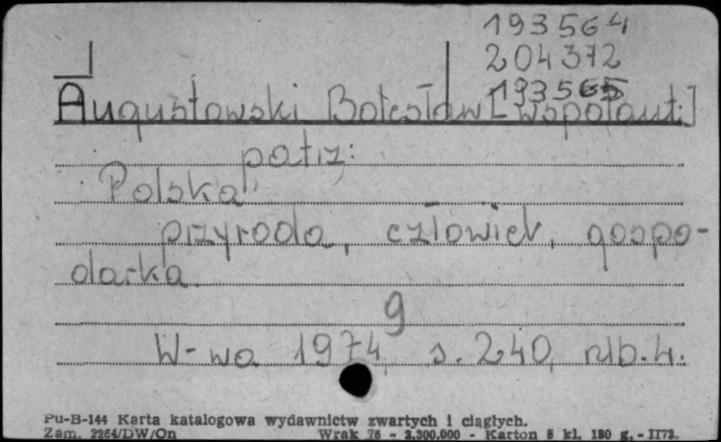 193564
204372
193565
Augustowski Bolesław [współaut.]
patrz:
Polska
przyroda, człowiek, gospo-
darka.
9
W-wa 1974, s. 240, nlb. 4.
Pu-B-144 Karta katalogowa wydawnictw zwartych i ciągłych.
Zam. 2264/DW/On Wrak 76 - 2.300.000 - Karton 5 kl. 180 g. - II73.